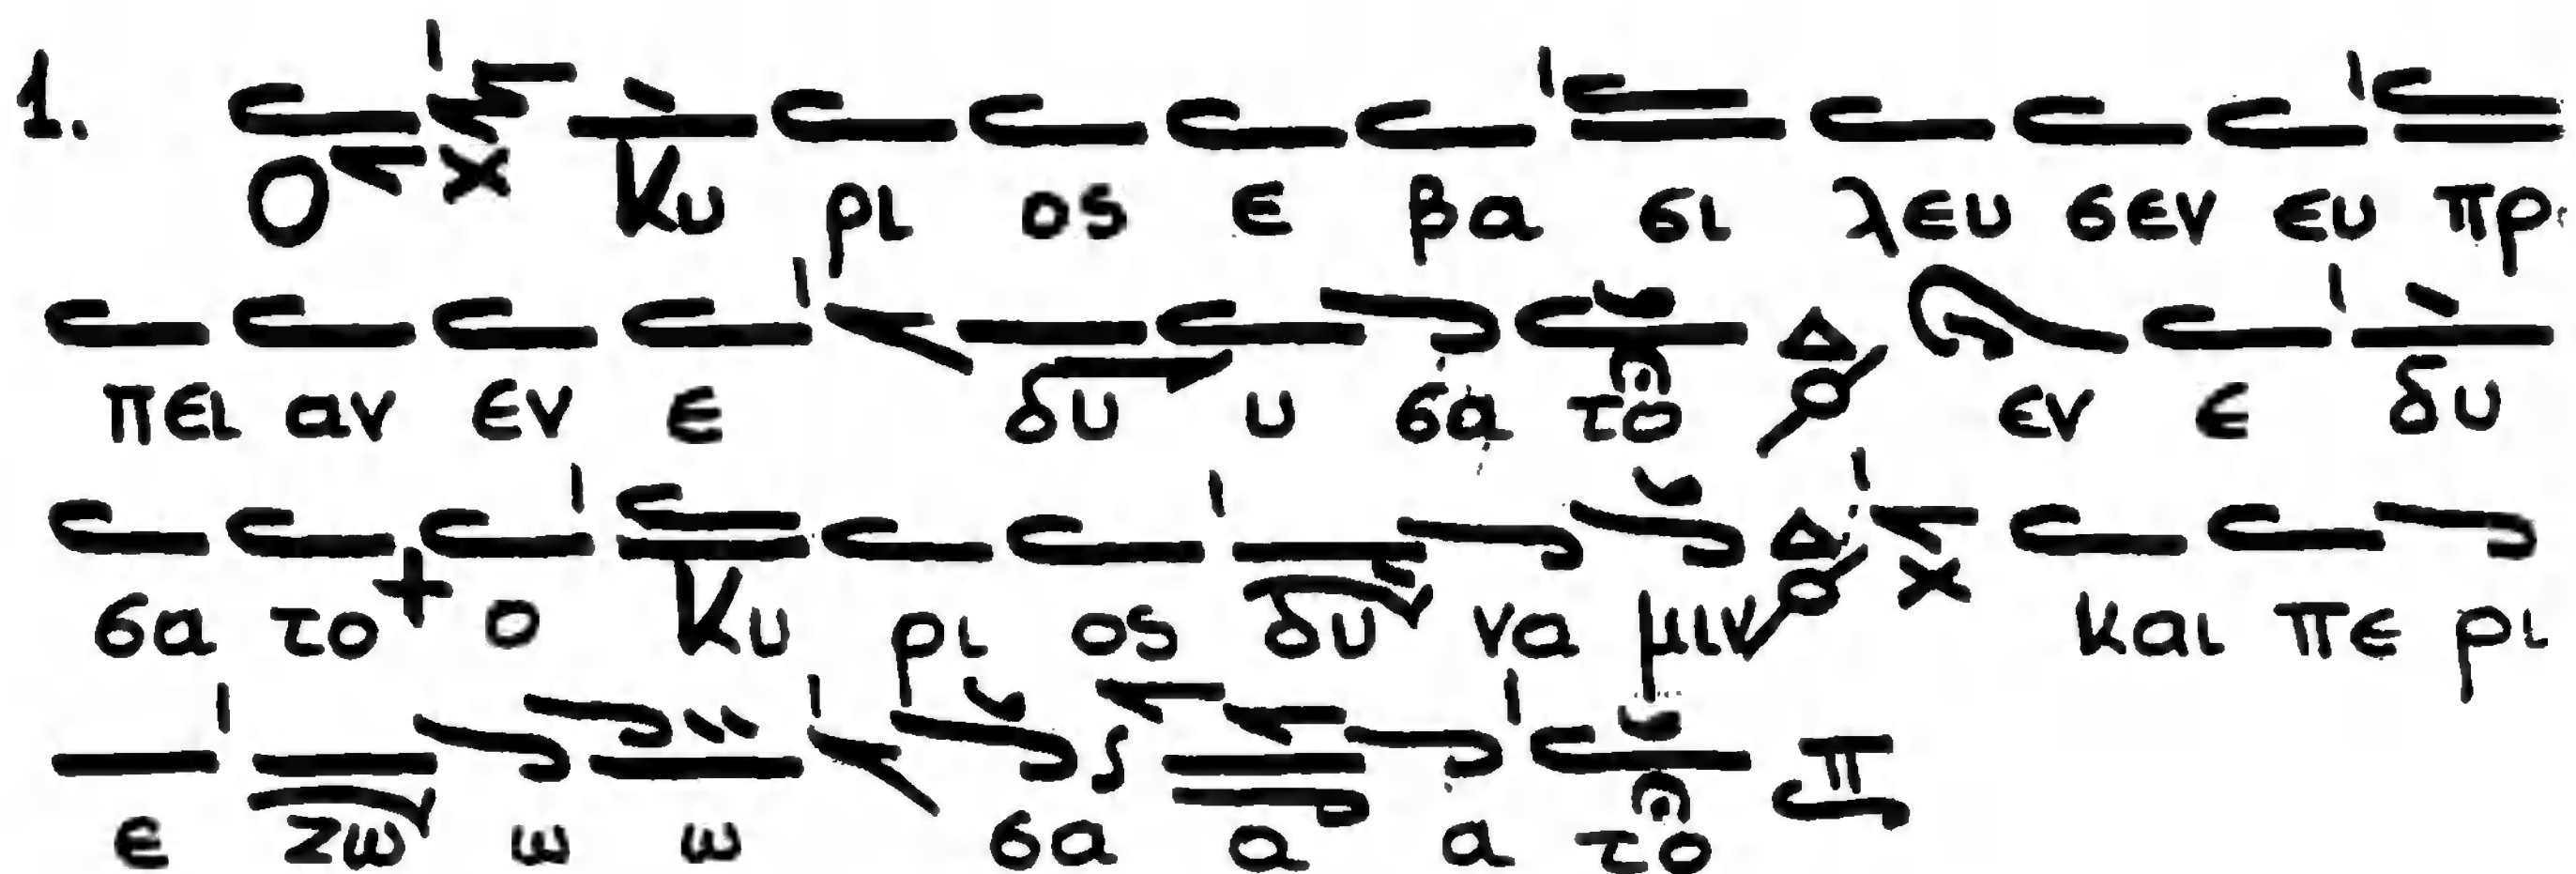 1. Ο Κυ ρι ος ε βα σι λευ σεν ευ πρ
πει αν εν ε δυ υ σα το Δ εν ε δυ
σα το + ο Κυ ρι ος δυ να μιν Δ και πε ρι
ε ζω ω ω σα α α το π